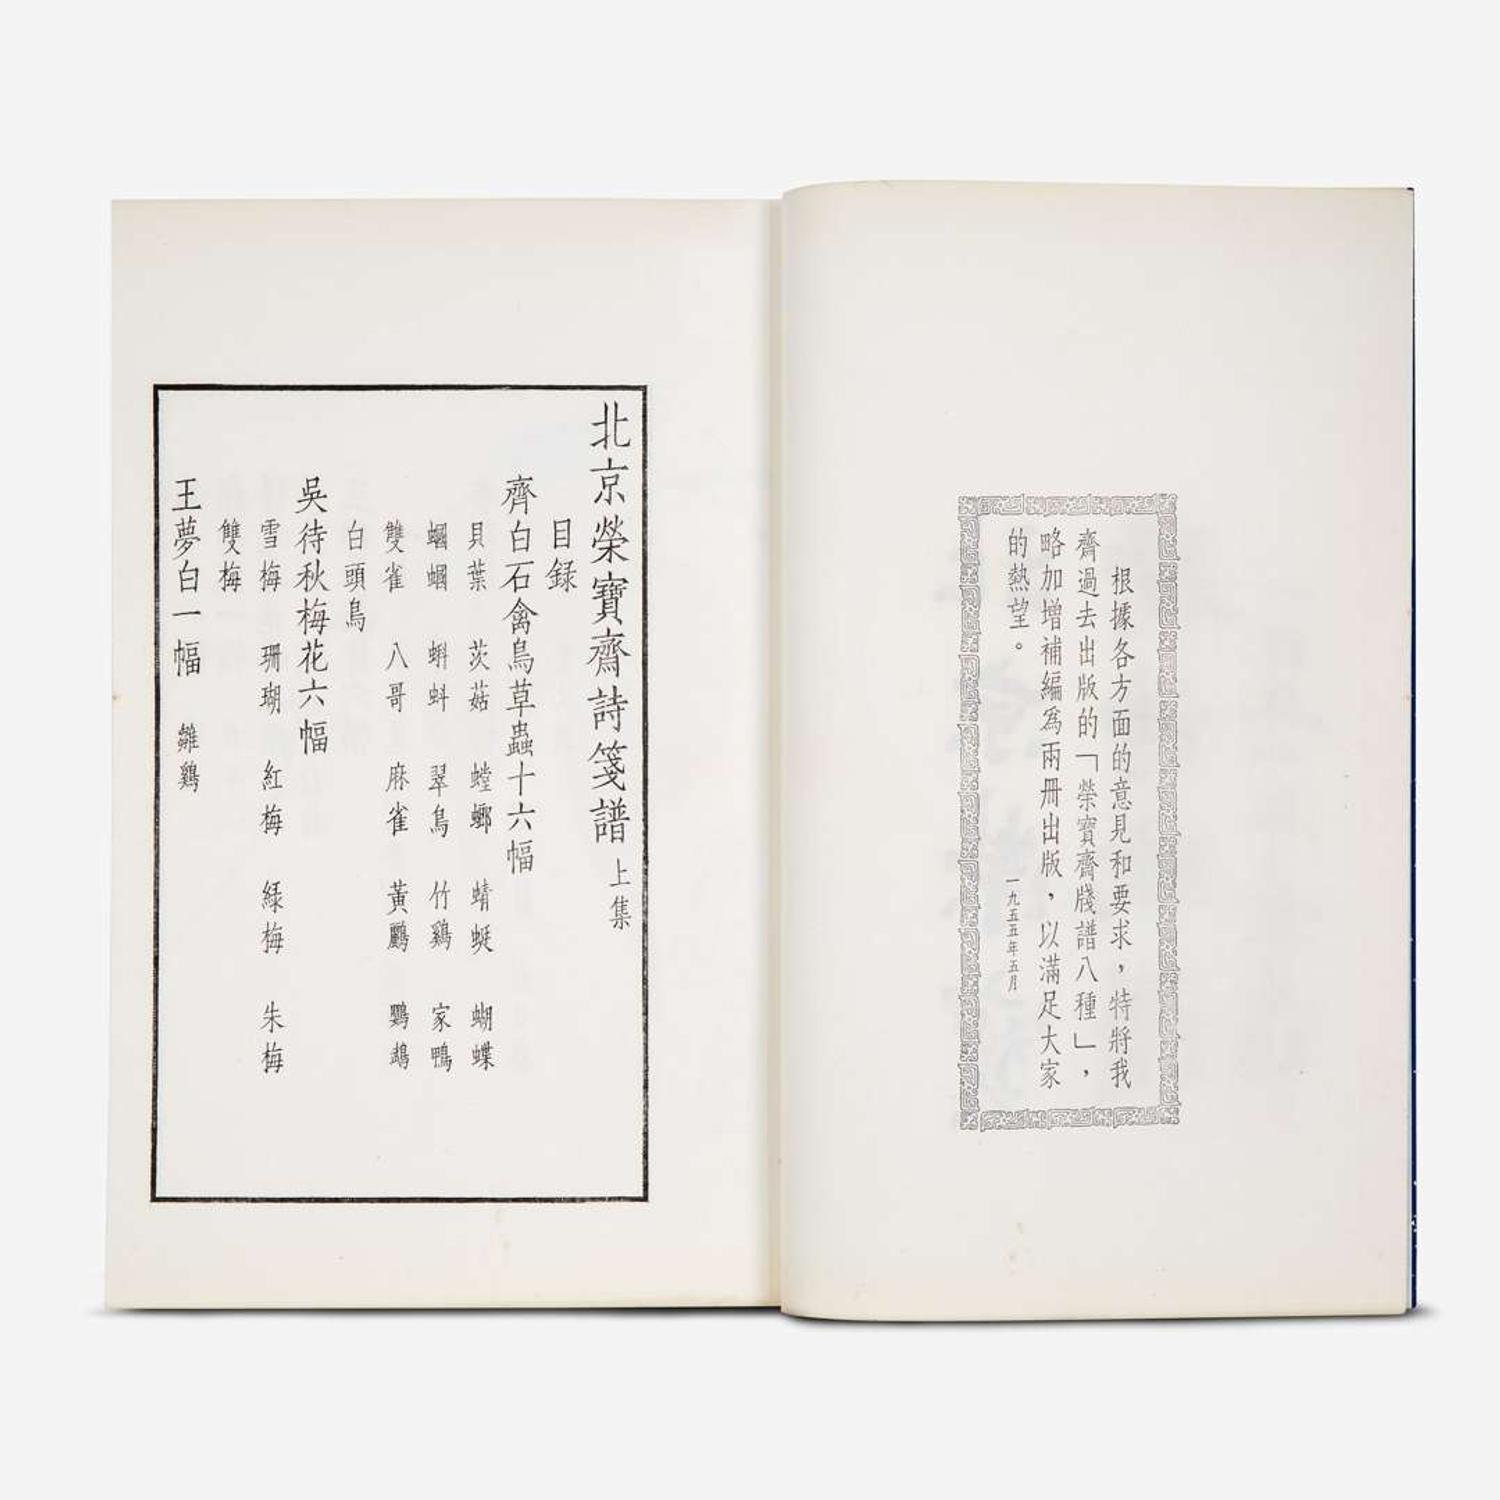 根據各方面的意見和要求，特將我
齋過去出版的「榮寶齋牋譜八種」，
略加增補編爲兩冊出版，以滿足大家
的熱望。
一九五五年五月
北京榮寶齋詩箋譜 上集
目録
齊白石禽鳥草蟲十六幅
貝葉 茨菇 螳螂 蜻蜓 蝴蝶
蟈蟈 蝌蚪 翠鳥 竹鷄 家鴨
雙雀 八哥 麻雀 黃鸝 鸚鵡
白頭鳥
吳待秋梅花六幅
雪梅 珊瑚 紅梅 緑梅 朱梅
雙梅
王夢白一幅 雛鷄